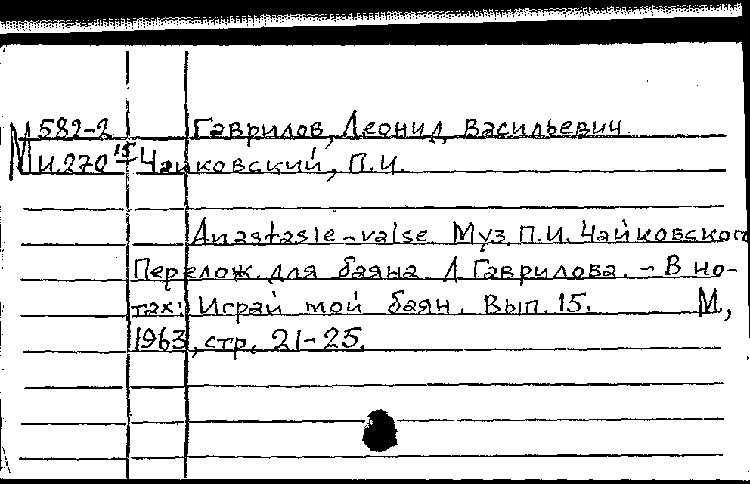 М 582-2 Гаврилов, Леонид Васильевич
И.270 15 Чайковский, П.И.
Anastasie-valse. Муз. П.И. Чайковского
Перелож. для баяна Л. Гаврилова. - В но-
тах: Играй мой баян. Вып. 15. М.,
1963, стр. 21-25.